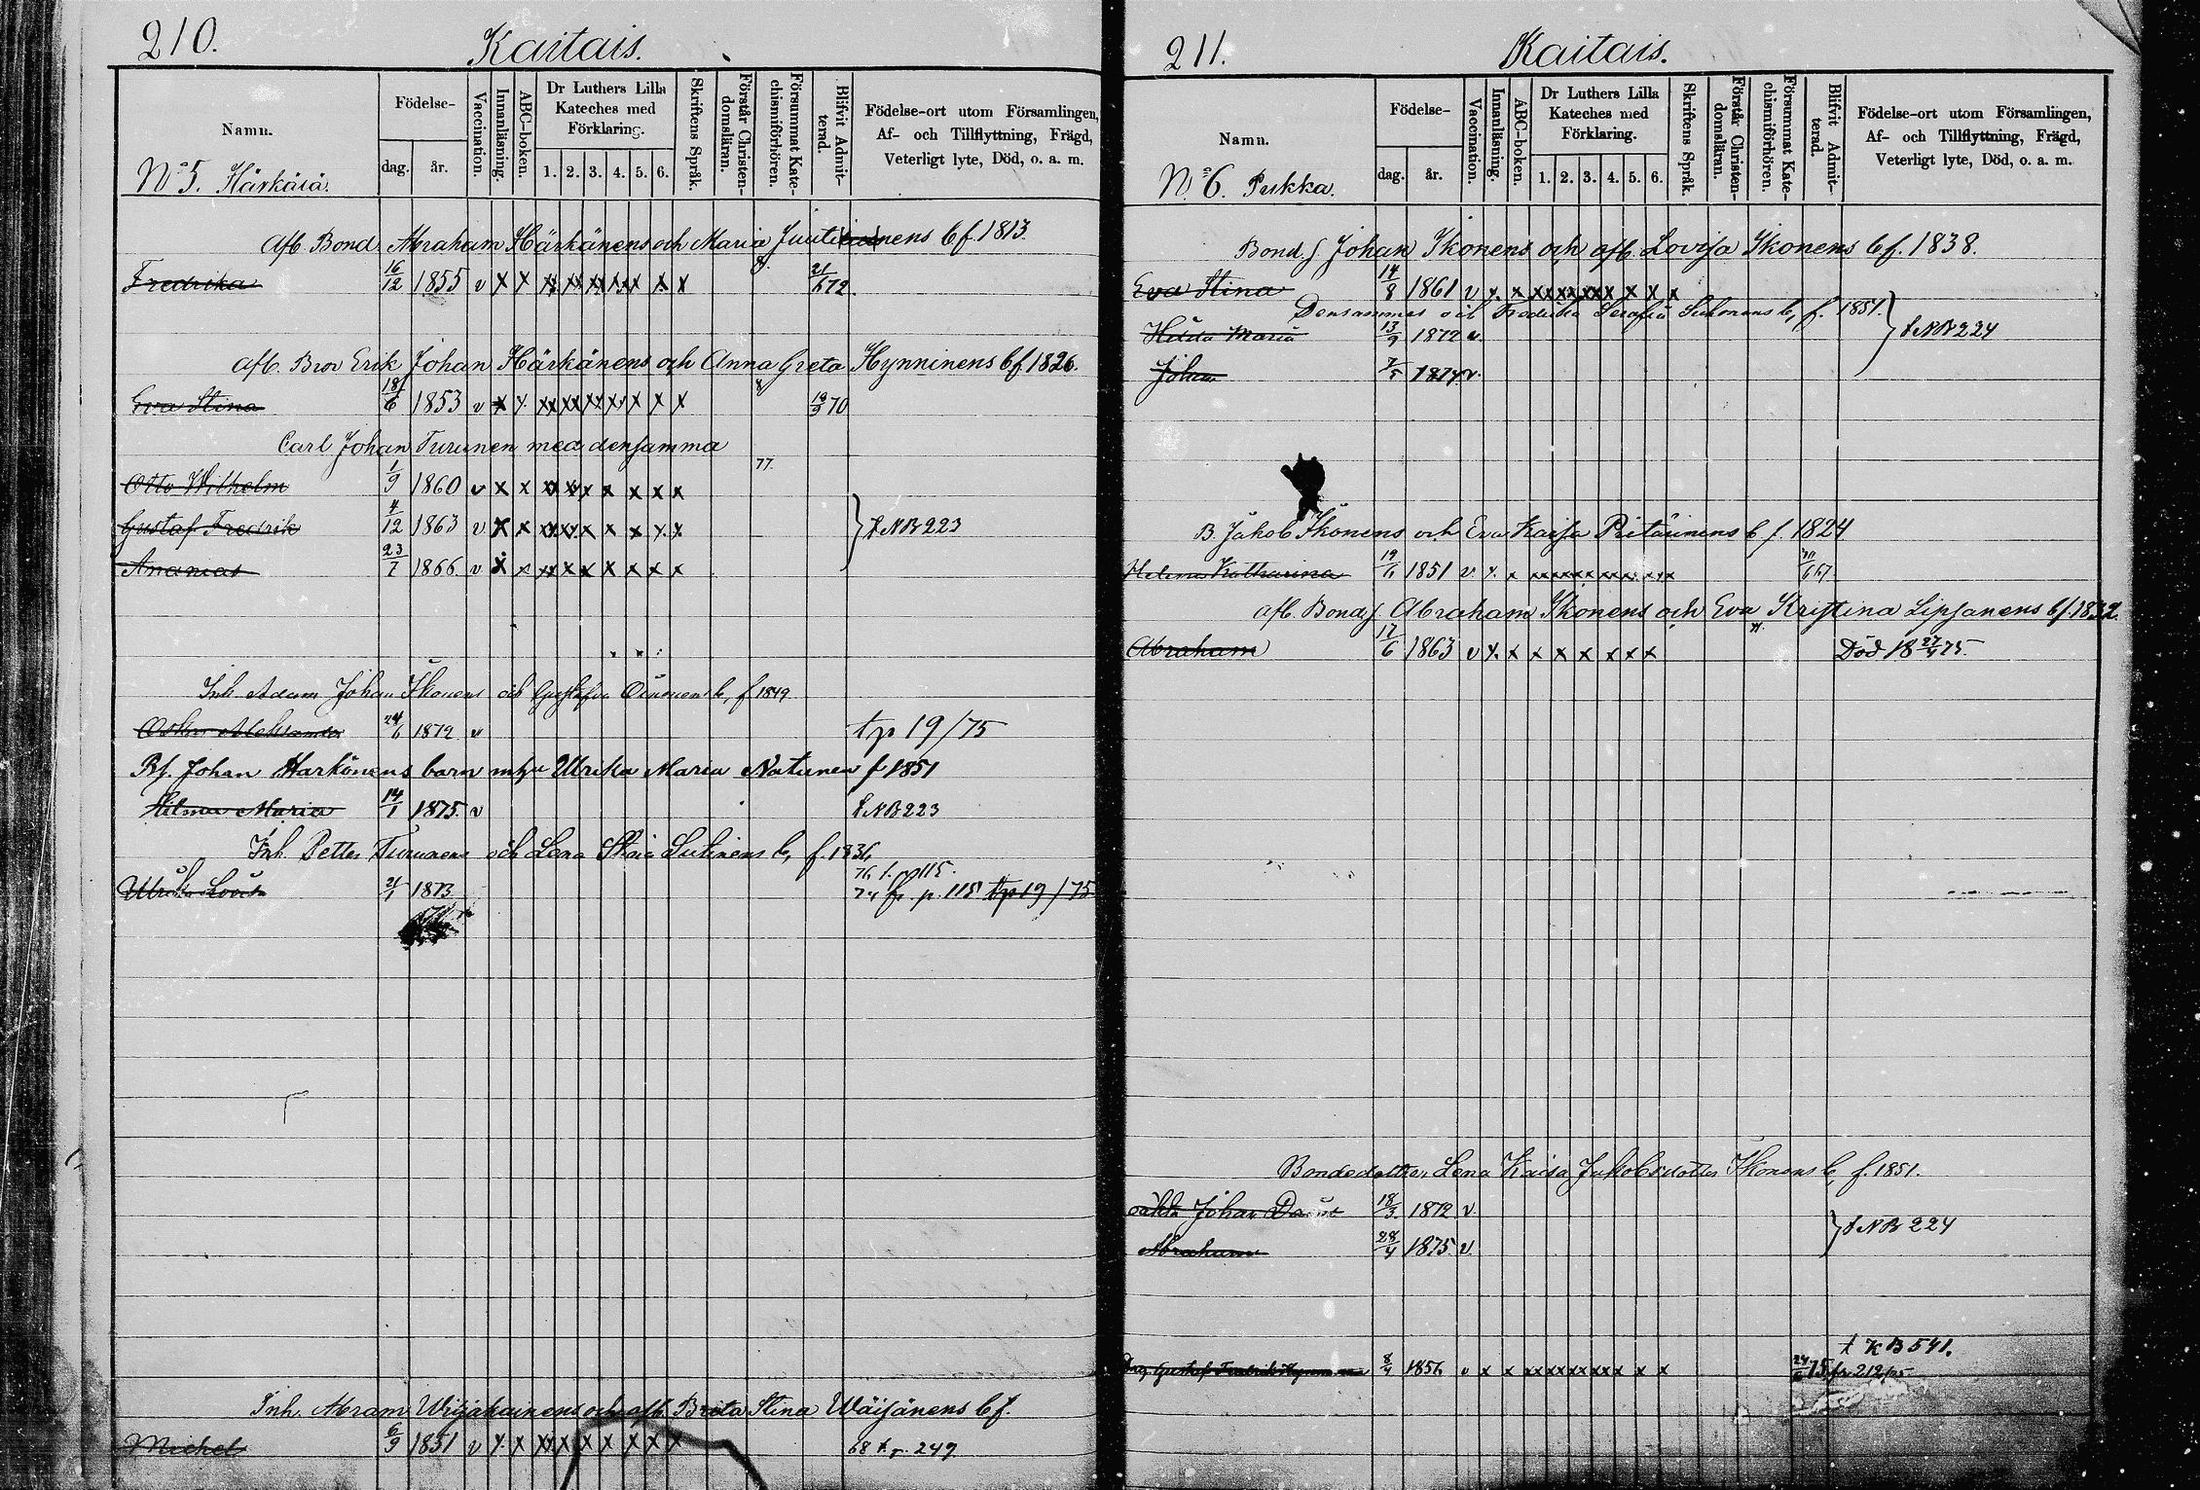 210.
Kaitais.
Namn.
Födelse-
dag.
år.
Vaccination.
Innanläsning.
ABC-boken.
Dr Luthers Lilla Kateches med Förklaring.
1. 2. 3. 4. 5. 6.
Skriftens Språk.
Förstår Christen-domsläran.
Försummat Kate-chismiförhören.
Blifvit Admit-terad.
Födelse-ort utom Församlingen, Af- och Tillflyttning, Frägd, Veterligt lyte, Död, o. a. m.
No 5. Härkälä
Afl. Bond. Abraham Härkänens och Maria Juutinens b f. 1813.
Fredrika 16/12 1855 v x x xx xx xx xx x x 21/6 72.
Afl. Bror Erik Johan Härkänens och Anna Greta Hynninens b f 1826.
Eva Stina 18/6 1853 v x x xx xx xx xx x x x 19/3 70
Carl Johan Turunen med densamma
77.
Otto Wilhelm 1/9 1860 v x x xx xx x x x x x
Gustaf Fredrik 4/12 1863 v x x xx xx x x x x x } t NB 223
Ananias 23/7 1866 v x x xx x x x x x x
Inh Adam Johan Ikonens och Gustafva b, f 1849
Oskar Aleksander 24/6 1872 v tp 19/75
Bf. Johan Harkönens barn m hu Ulrika Maria Natunen f 1851
Hilma Maria 14/1 1875. v t NB 223
Inh Petter Turunens och Lena b, f. 1836
76 t. p 115.
Ulrika Lovisa 21/1 1873 74 fr. p. 115 tp 19/75
Inh. Abram Wäjakainens och afl. Brita Stina Wäisänens b f.
Michel 6/9 1851 v x x xx x x x x x x 68 t p. 249
211.
Kaitais.
Namn.
Födelse-
dag.
år.
Vaccination.
Innanläsning.
ABC-boken.
Dr Luthers Lilla Kateches med Förklaring.
1. 2. 3. 4. 5. 6.
Skriftens Språk.
Förstår Christen-domsläran.
Försummat Kate-chismiförhören.
Blifvit Admit-terad.
Födelse-ort utom Församlingen, Af- och Tillflyttning, Frägd, Veterligt lyte, Död, o. a. m.
No 6. Pukka.
Bond. s Johan Ikonens och afl. Lovisa Ikonens b f. 1838.
Eva Stina 14/8 1861 v x x xx xx xx x x x x
Densammes och Fredrika Serafia b, f. 1851.
Hilda Maria 13/9 1872 v. } t NB 224
Johan 7/5 1874 v.
B. Jakob Ikonens och Eva Kaisa Pitäinens b f 1824
Helena Katharina 19/6 1851 v x x xx xx xx xx xx xx 6 67.
Afl. Bond. s Abraham Ikonens och Eva Kristina Lipsanens b f. 1832.
Abraham 17/6 1863 v x x x x x x x x Död 18 27/4 75.
Bondedotter Lena Kaisa Jakobsdotter Ikonens b, f. 1851.
oäkta Johan David 18/3 1872 v. } t NB 224
Abraham 28/4 1875 v.
t KB 541.
Gustaf Fredrik 8/4 1856 v x x xx xx xx xx x x 24/6 75 fr 212/75